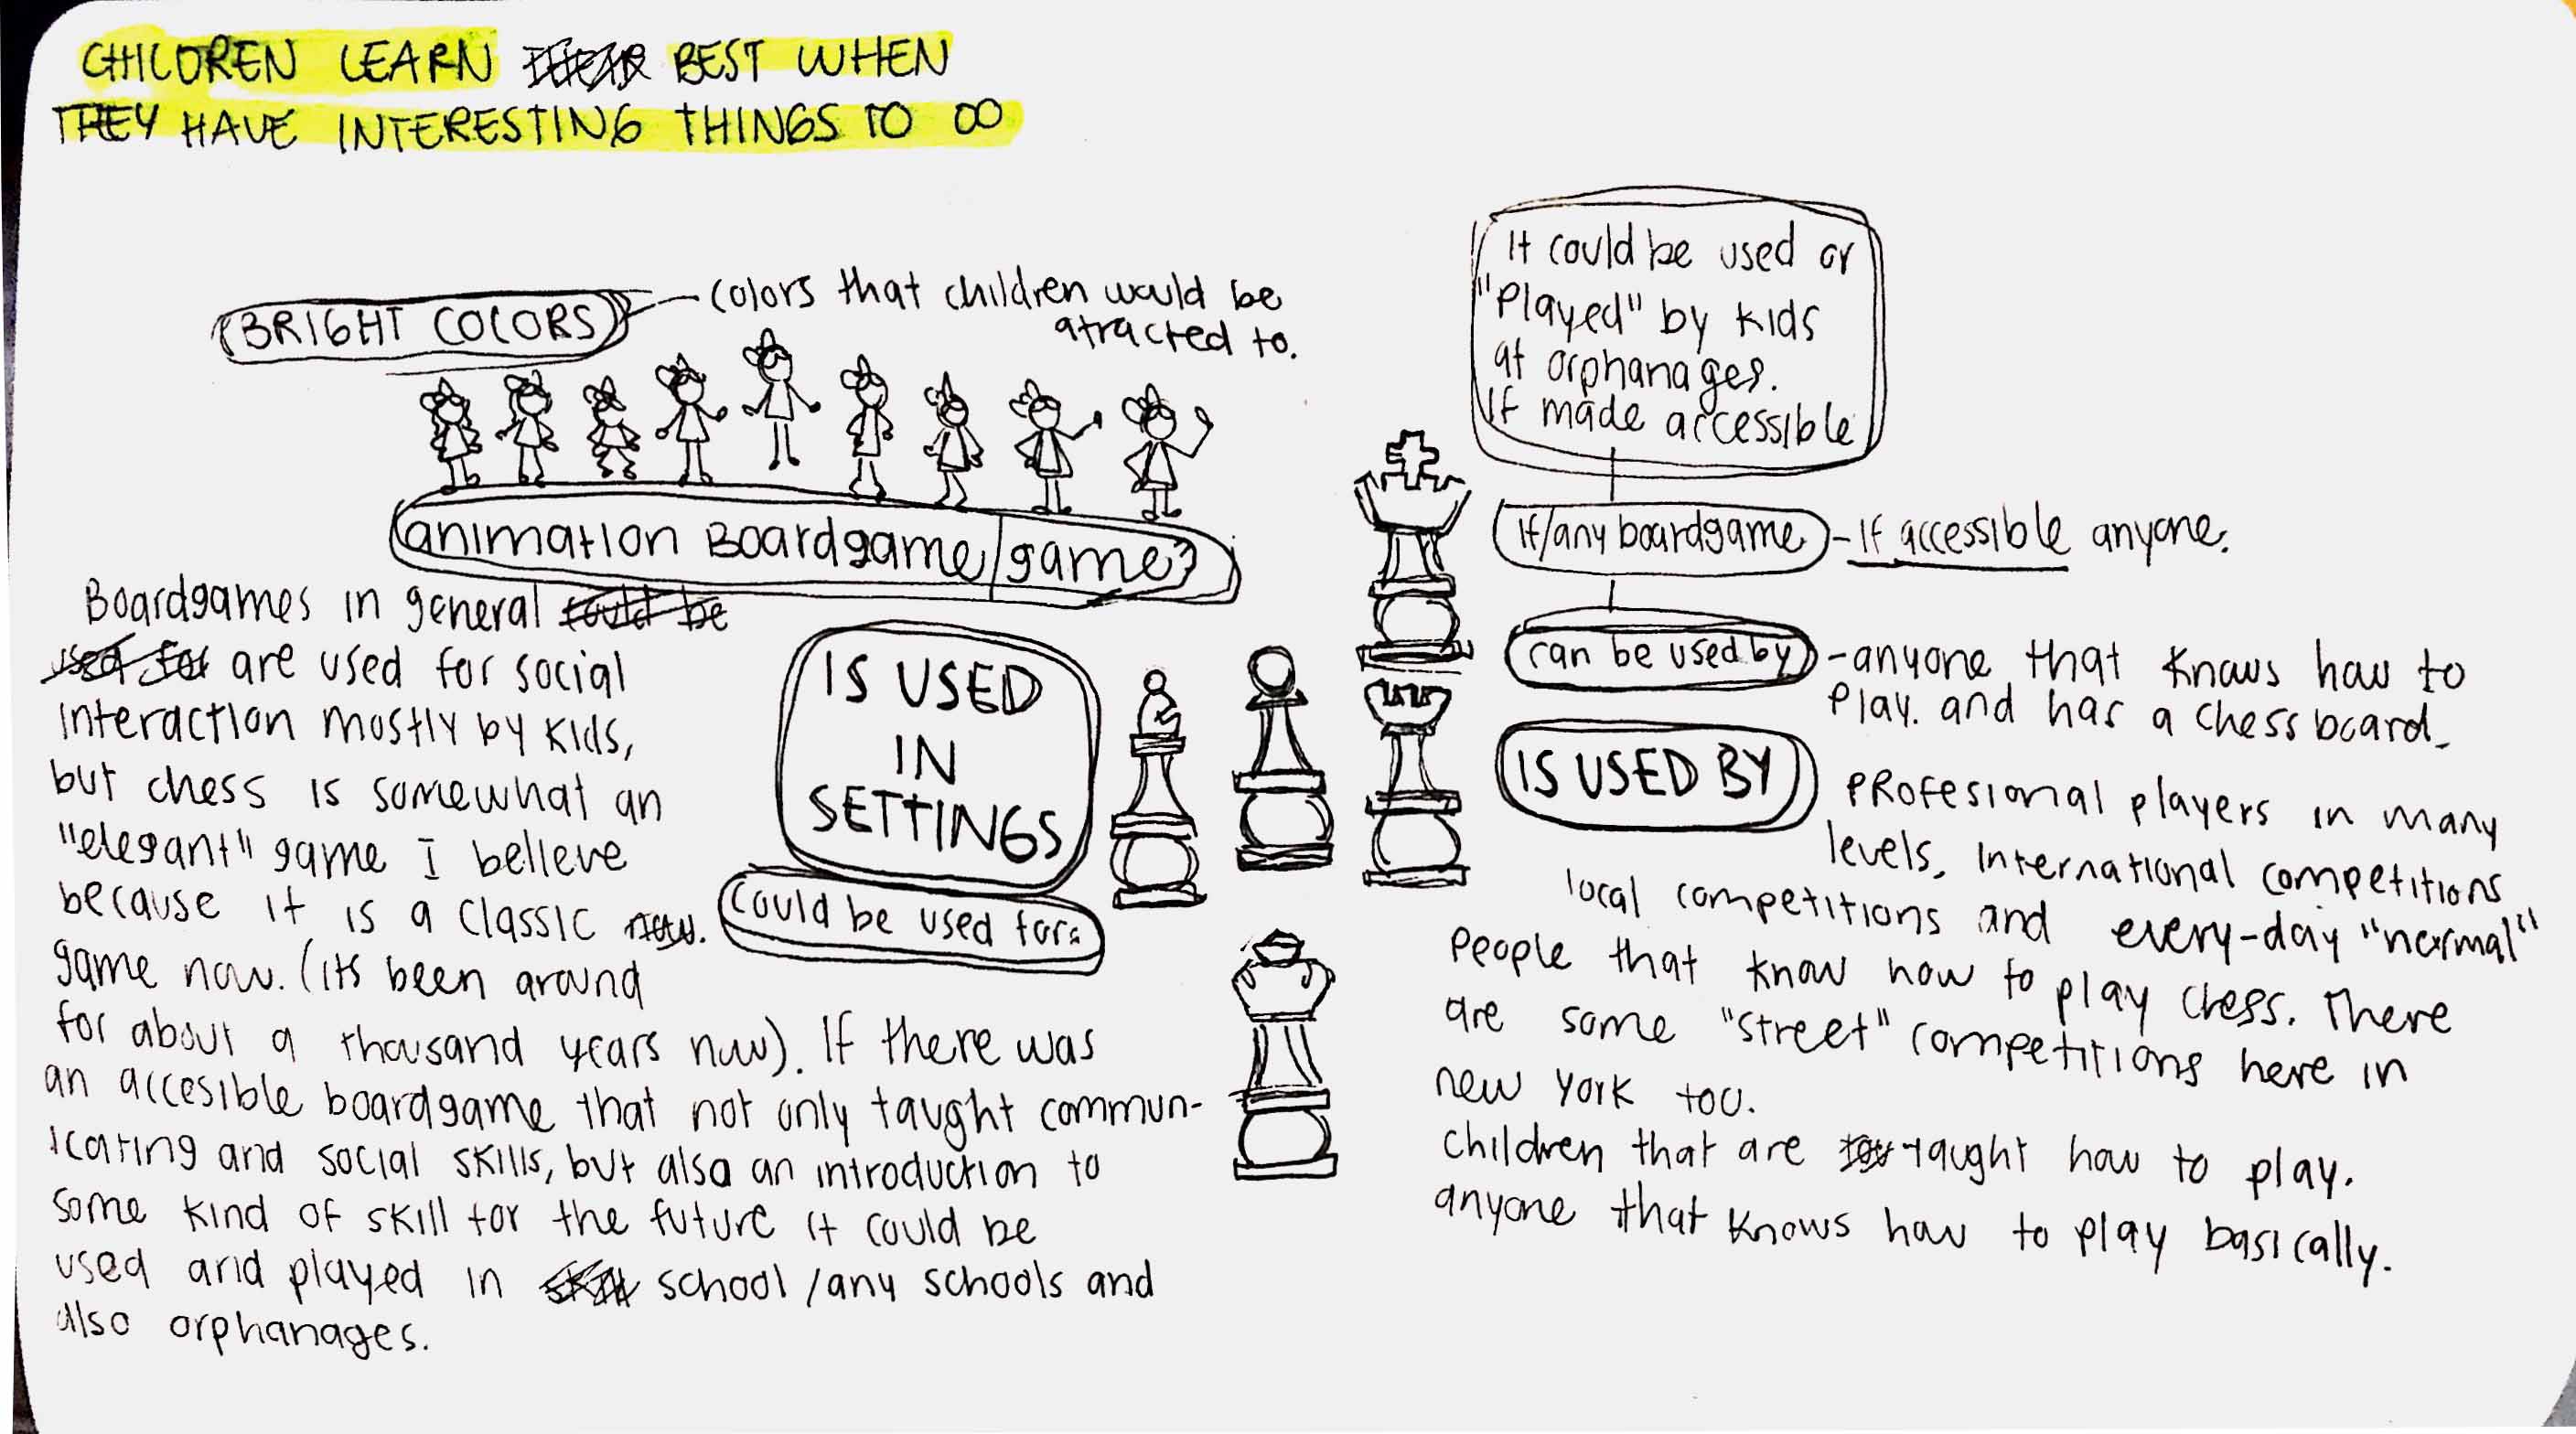 CHILDREN LEARN BEST WHEN
THEY HAVE INTERESTING THINGS TO DO
BRIGHT COLORS
colors that children would be
atracted to.
animation Boardgame/game?
Boardgames in general could be
used for are used for social
interaction mostly by kids,
but chess is somewhat an
"elegant" game I believe
because it is a classic now.
game now. (its been around
for about a thousand years now). If there was
an accesible boardgame that not only taught commun-
icating and social skills, but also an introduction to
some kind of skill for the future it could be
used and played in school/any schools and
also orphanages.
IS USED
IN
SETTINGS
Could be used for:
It could be used or
"Played" by kids
at orphanages.
If made accessible
If/any boardgame
- If accessible anyone.
can be used by
- anyone that knows how to
play. and has a chess board.
IS USED BY
PROfesional players in many
levels, International competitions
local competitions and every-day "normal"
people that know how to play chess. There
are some "street" competitions here in
new york too.
children that are taught how to play.
anyone that knows how to play basically.